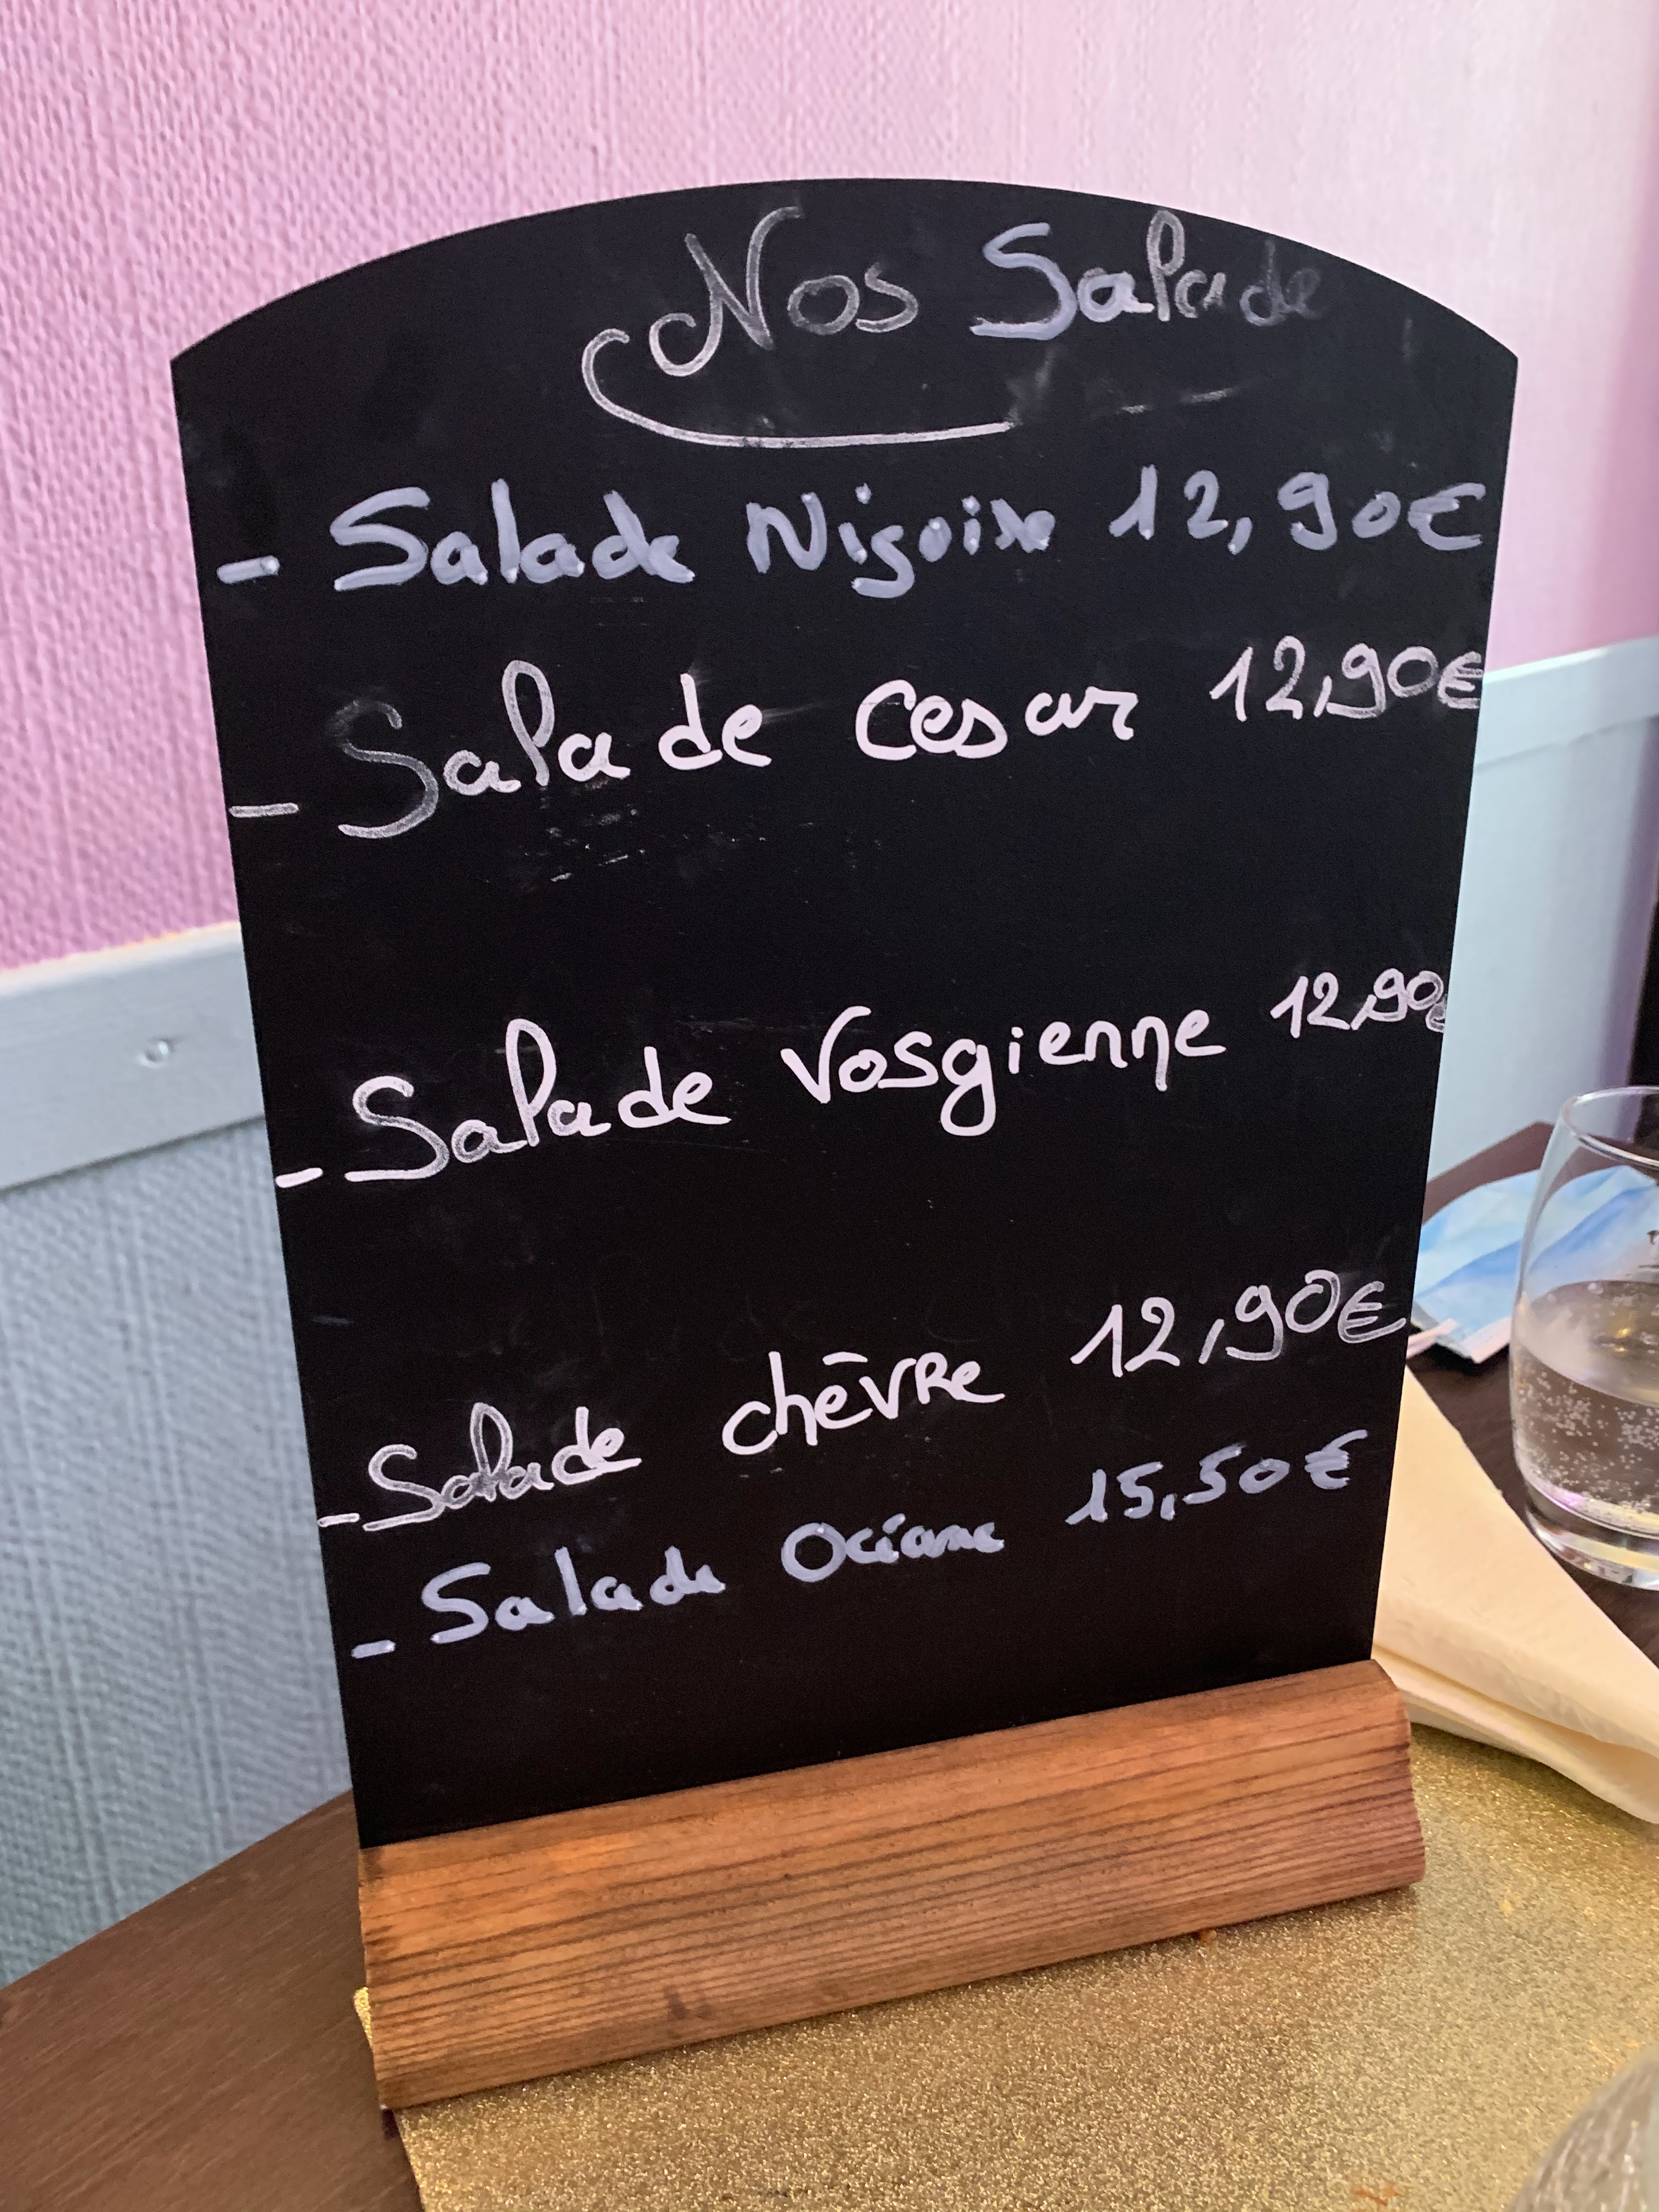 Nos Salade
- Salade Niçoise 12,90€
- Salade Cesar 12,90€
- Salade Vosgienne 12,90€
- Salade chèvre 12,90€
- Salade Océane 15,50€